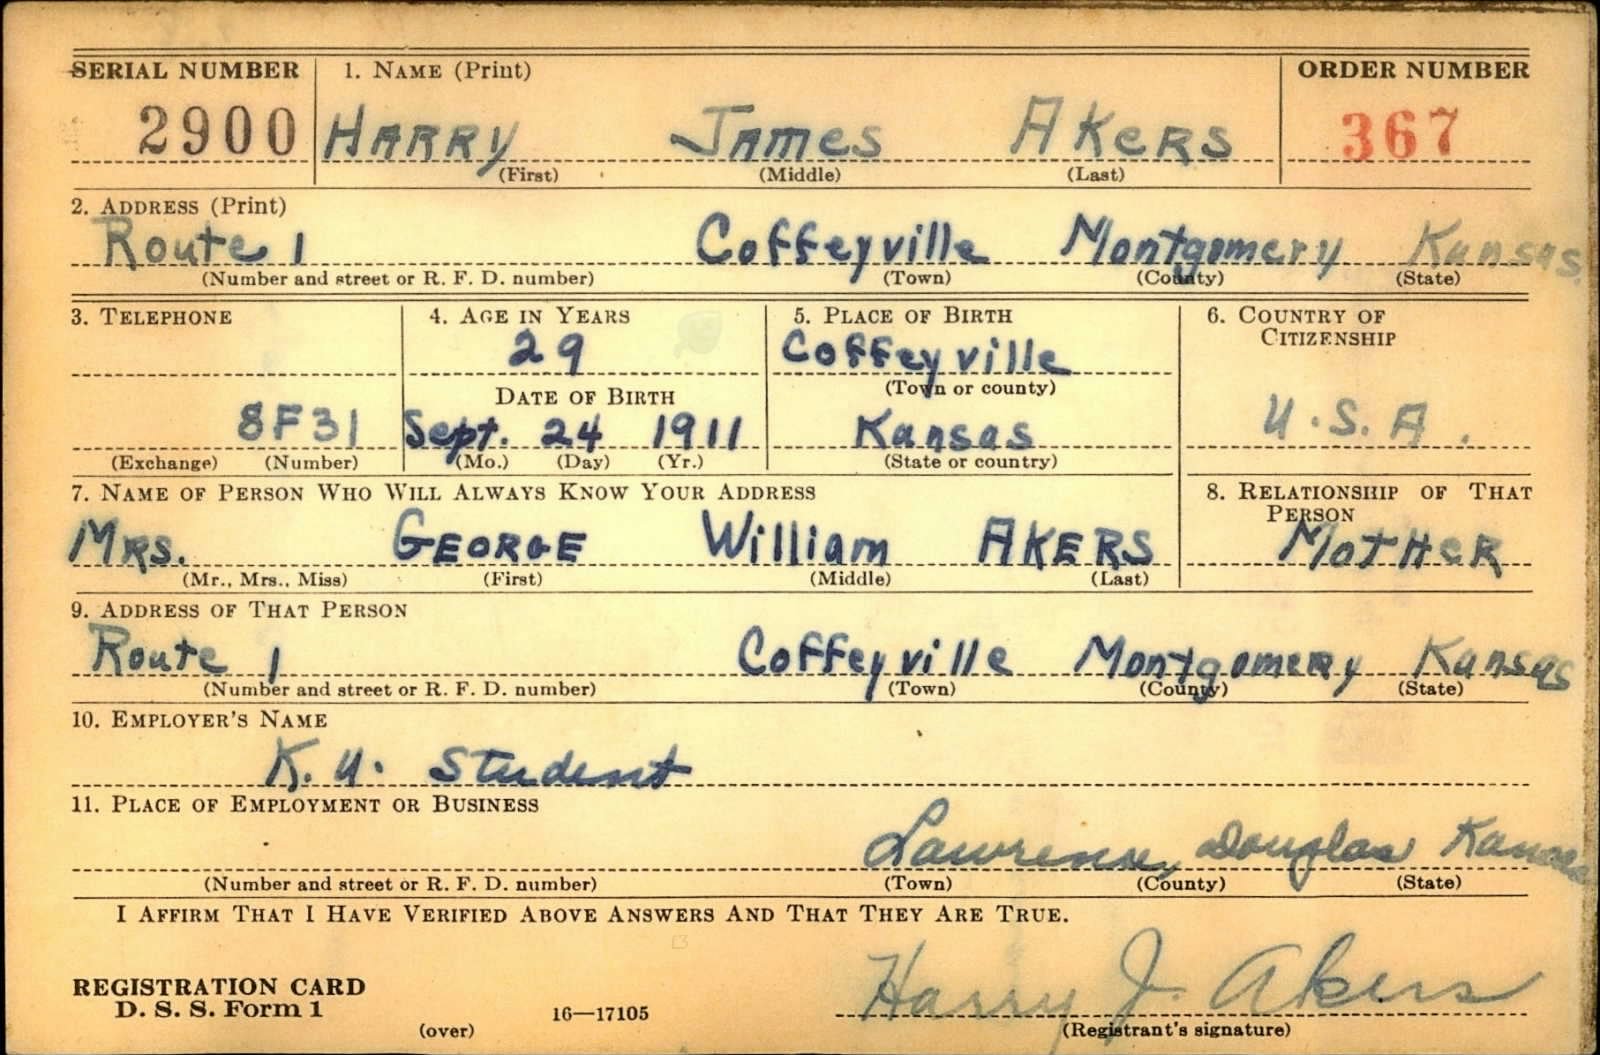 SERIAL NUMBER 1. NAME (Print) ORDER NUMBER
2900 HARRY James AKERS 367
(First) (Middle) (Last)
2. ADDRESS (Print)
Route 1 Coffeyville Montgomery Kansas
(Number and street or R. F. D. number) (Town) (County) (State)
3. TELEPHONE 4. AGE IN YEARS 5. PLACE OF BIRTH 6. COUNTRY OF
CITIZENSHIP
29 Coffeyville
(Town or county)
DATE OF BIRTH
8F31 Sept. 24 1911 Kansas U.S.A.
(Exchange) (Number) (Mo.) (Day) (Yr.) (State or country)
7. NAME OF PERSON WHO WILL ALWAYS KNOW YOUR ADDRESS 8. RELATIONSHIP OF THAT
PERSON
MRS. GEORGE William AKERS MOTHER
(Mr., Mrs., Miss) (First) (Middle) (Last)
9. ADDRESS OF THAT PERSON
Route 1 Coffeyville Montgomery Kansas
(Number and street or R. F. D. number) (Town) (County) (State)
10. EMPLOYER'S NAME
K. U. Student
11. PLACE OF EMPLOYMENT OR BUSINESS
Lawrence, Douglas Kansas
(Number and street or R. F. D. number) (Town) (County) (State)
I AFFIRM THAT I HAVE VERIFIED ABOVE ANSWERS AND THAT THEY ARE TRUE.
REGISTRATION CARD
D. S. S. Form 1 Harry J. Akers
(over) 16—17105 (Registrant's signature)